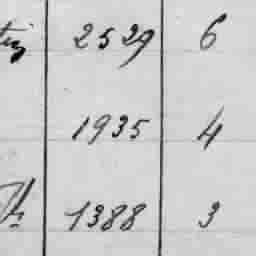 2529 6
1935 4
1388 3